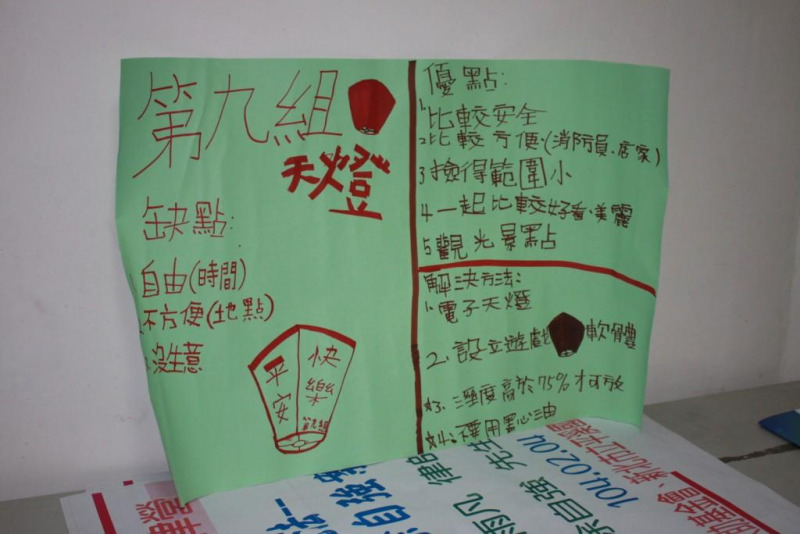 第九組
天燈
缺點:
自由(時間)
不方便(地點)
沒生意
平安
快樂
第九組
優點:
1比較安全
2比較方便(消防員、店家)
3撿得範圍小
4一起比較好看、美麗
5觀光景點
解決方法:
1.電子天燈
2.設立遊戲軟體
*3.溼度高於75%才可放
*4.不要用
104.02.04